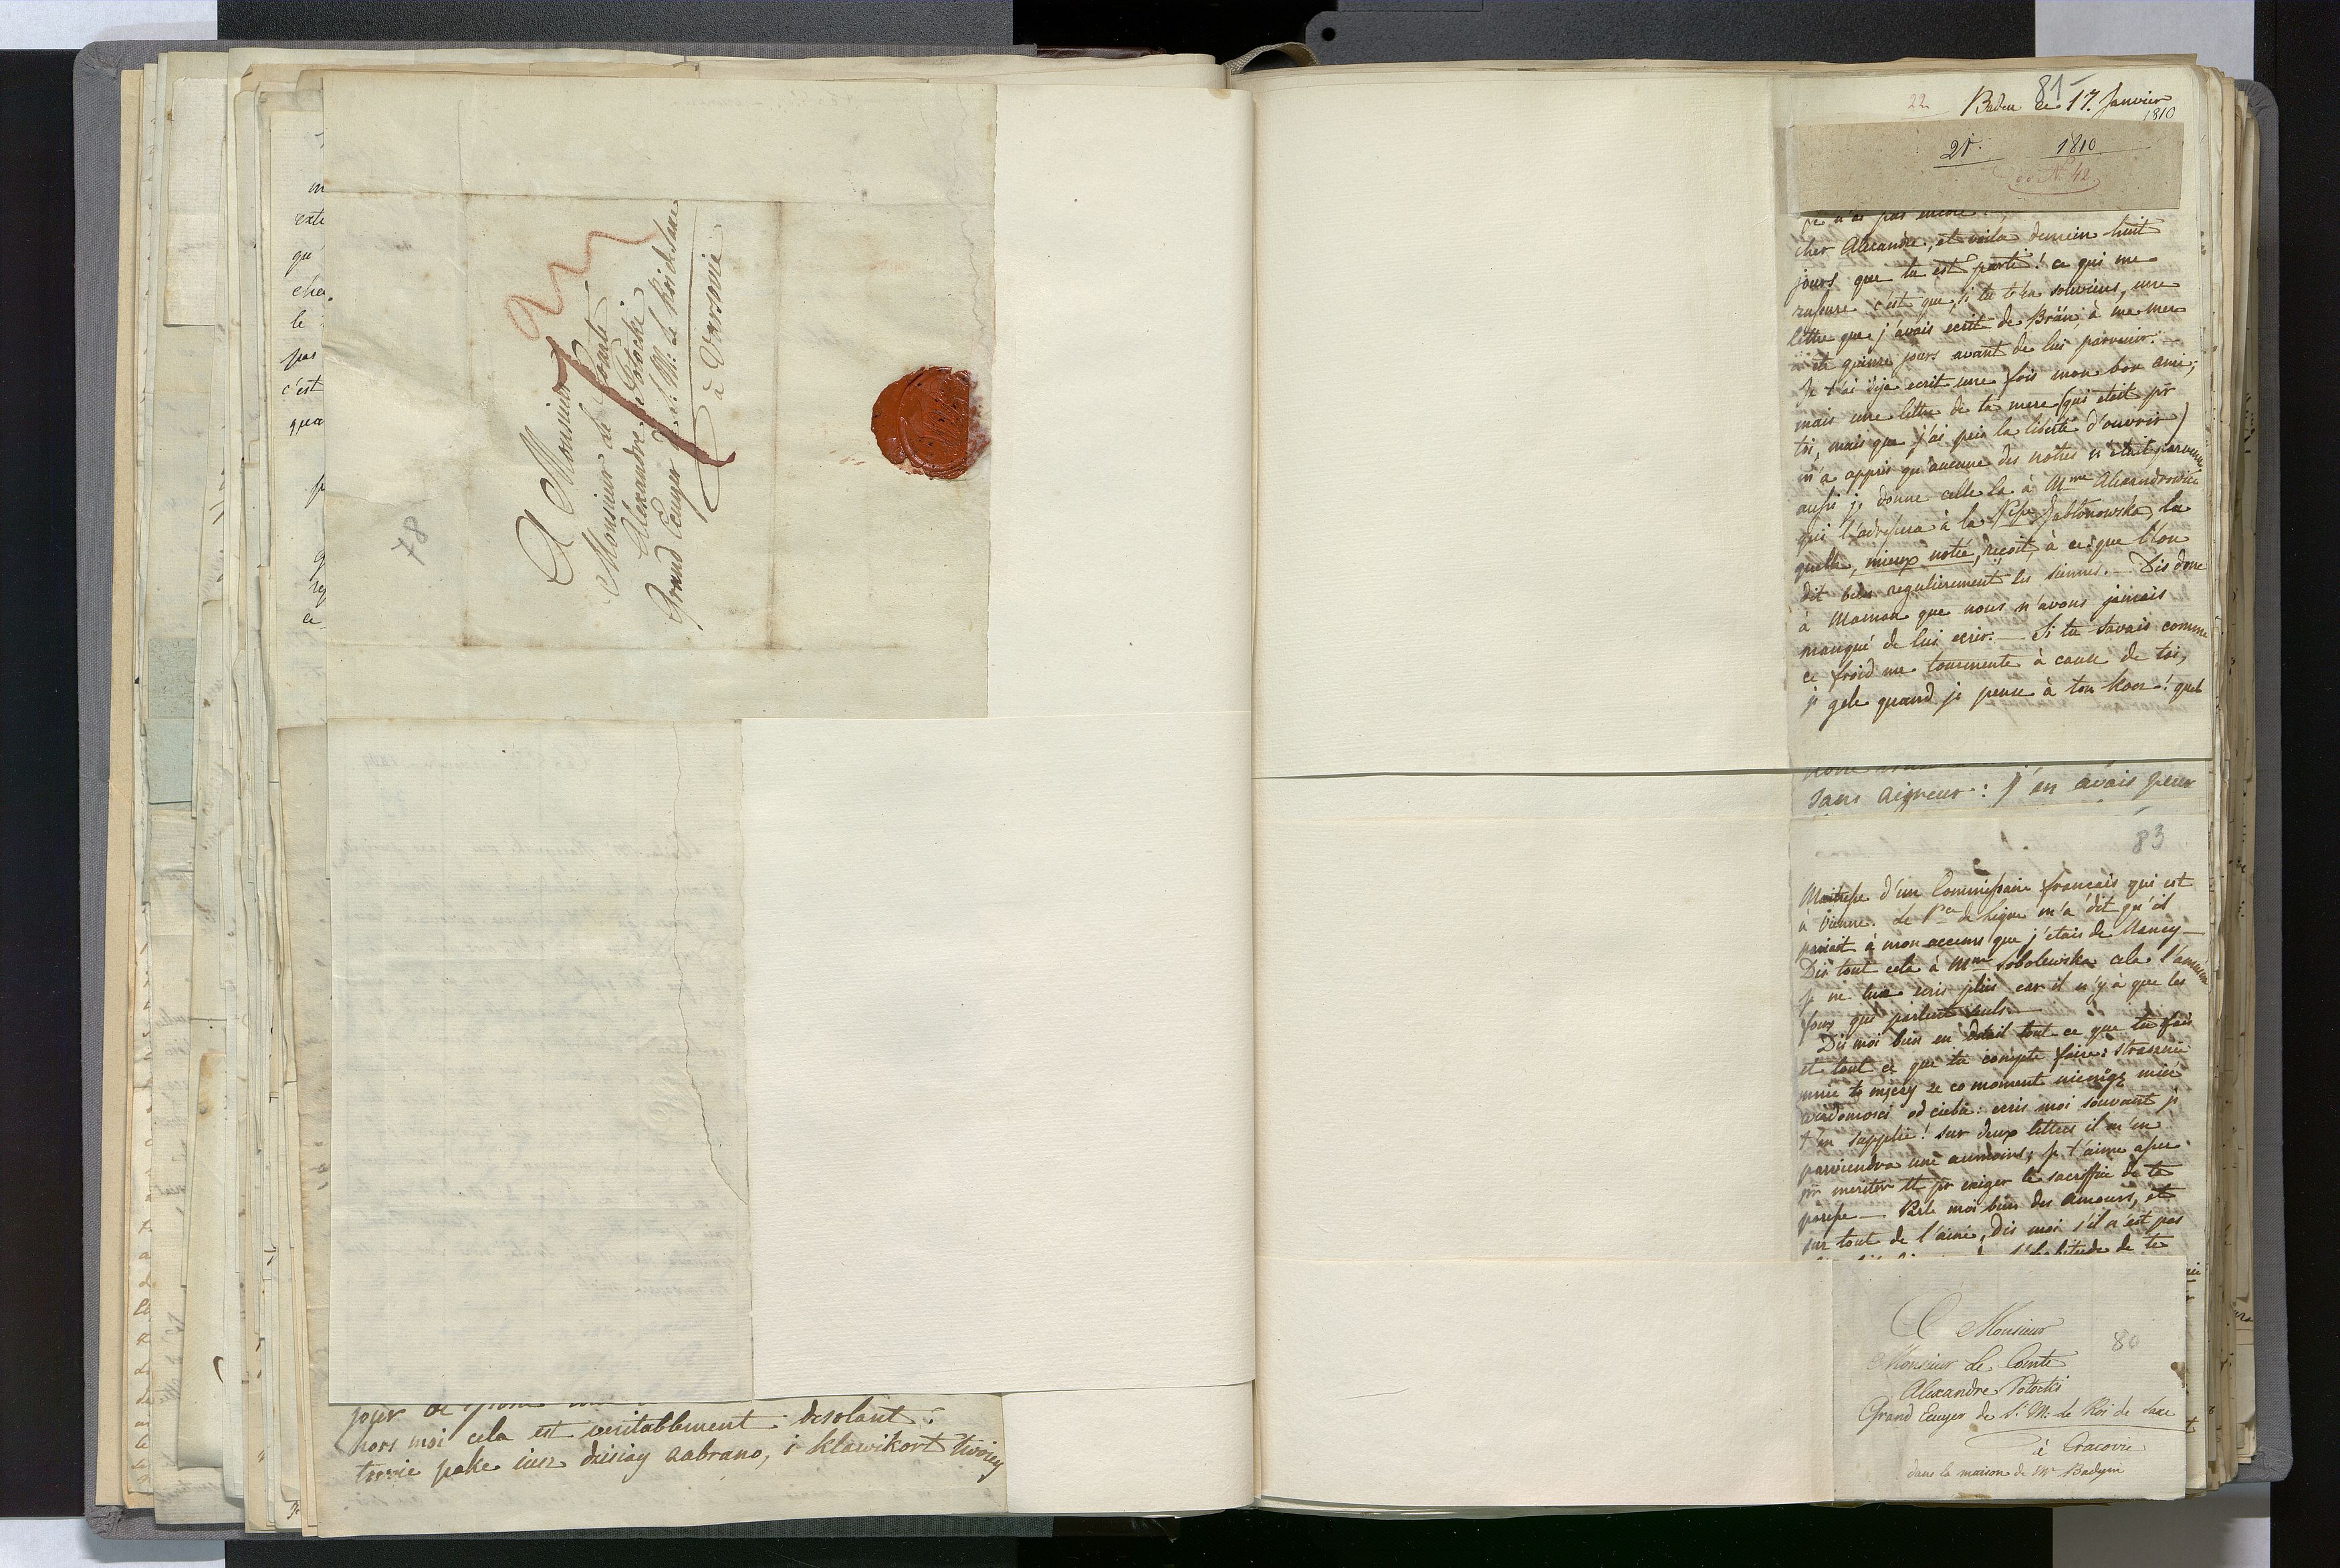 A Monsieur
Monsieur le Comte
Alexandre Potocki
Grand Ecuyer de S: M: le Roi de Saxe
à Varsovie
78
exte
qu
cha
le
pas
c'est
qua
ce
hors moi cela est veritablement desolant:
twoie pake iusz dzisiay zabrano, i klawikort twoiey
22 Baden ce 17. Janvier
1810
81
21. 1810
42
je n'ai pas encore
cher Alexandre, et voila demain huit
jours que tu est parti! ce qui me
rassure c'est que, si tu t'en souviens, une
lettre que j'avais ecrit de Brün, à ma mere
et quinze jours avant de lui parvenir.
Je t'ai deja ecrit une fois mon bon ami,
mais une lettre de ta mere (qui etait pr
toi, mais que j'ai pris la liberté d'ouvrir)
m'a appris qu'aucune des notres n'etait parvenue,
aussi je donne celle la à Mme Alexandrowicz
qui l'adressera à la Psse Jablonowska, la
quelle, mieux notée, reçoit, à ce que l'on
dit bien regulierement les siennes. — Dis donc
à Maman que nous n'avons jamais
manqué de lui ecrir. — Si tu savais comme
ce froid me tourmente à cause de toi,
je gele quand je pense à ton kocz! quel
sans aigreur: j'en avais peur
83
Maitresse d'un Commissaire français qui est
à Vienne. Le Pce de Ligne m'a dit qu'il
pariait à mon accens que j'etais de Nancy —
Dis tout cela à Mme Sobolewska cela l'amusera
je ne lui ecris plus car il n'y à que les
fous qui parlent seuls. —
Dis moi bien en detail tout ce que tu fais
et tout ce que tu compte faire: strasznie
mnie to męczy ze co moment niemógę miec
wiadomosci od ciebie: ecris moi souvent je
t'en supplie! sur deux lettres il m'en
parviendra une aumoins; je t'aime assez
pr meriter et pr exiger le sacrifice de ta
paresse — Parle moi bien des amours, et
sur tout de l'ainé, Dis moi s'il n'est pas
l'habitude de te
A Monsieur
80
Monsieur le Comte
Alexandre Potocki
Grand Ecuyer de S: M: le Roi de Saxe
à Cracovie
dans la maison de Mr Badeni